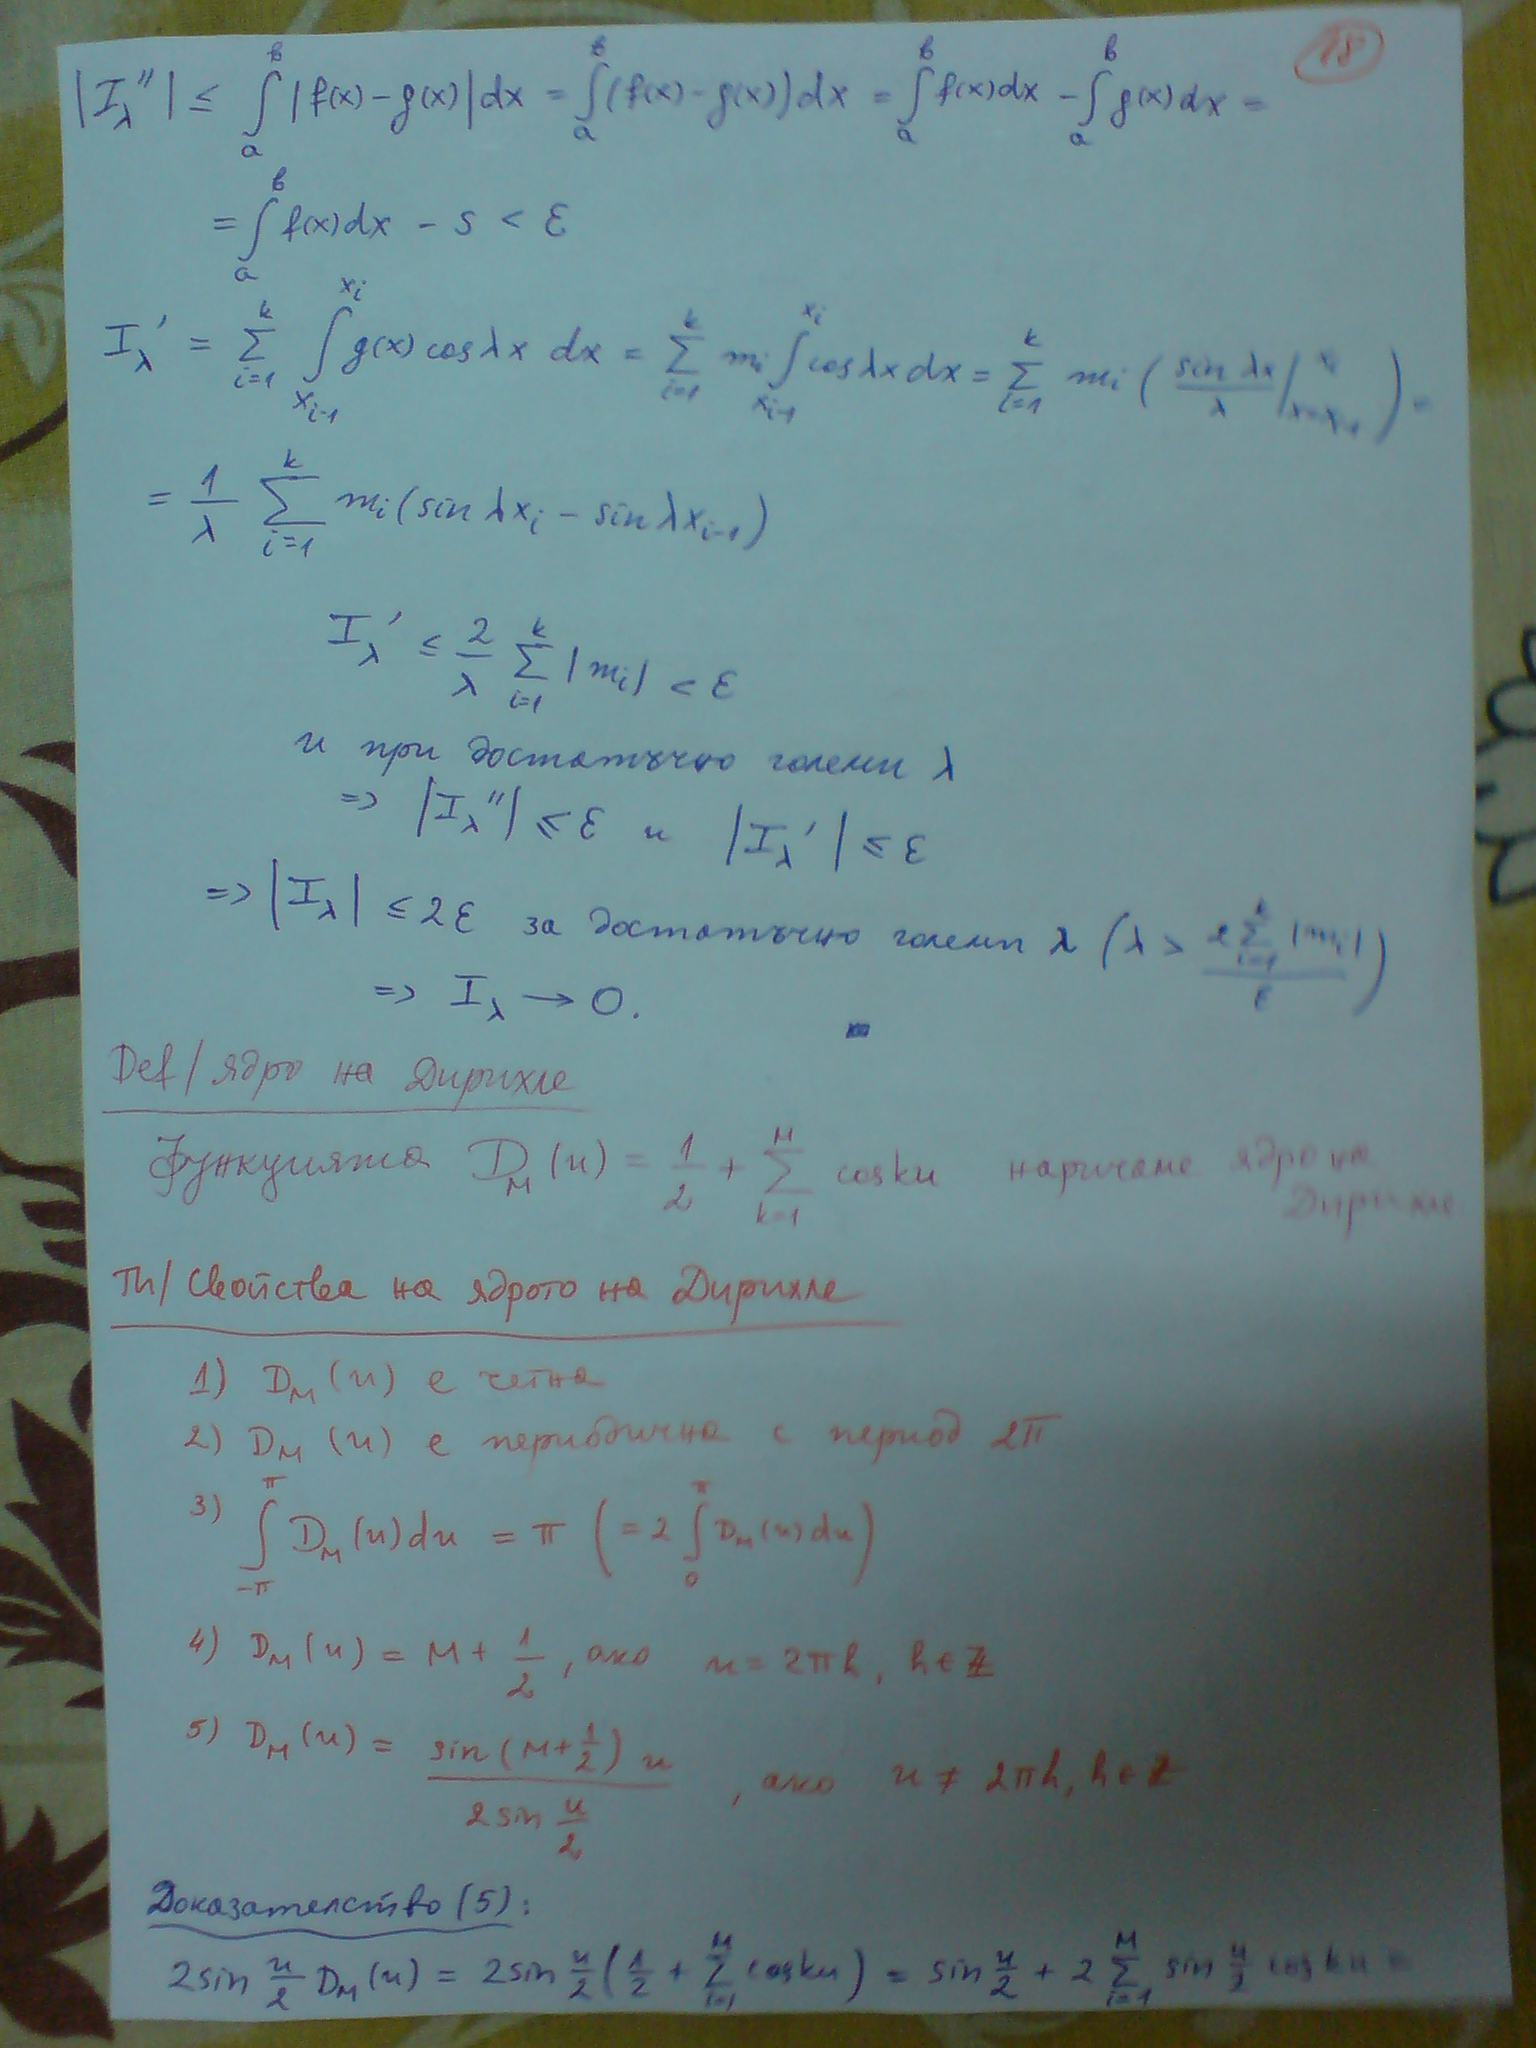 18
|I_λ''| ≤ ∫_a^b |f(x) - g(x)| dx = ∫_a^b (f(x) - g(x)) dx = ∫_a^b f(x)dx - ∫_a^b g(x)dx =
= ∫_a^b f(x)dx - s < ε
I_λ' = ∑_{i=1}^k ∫_{x_{i-1}}^{x_i} g(x) cos λx dx = ∑_{i=1}^k m_i ∫_{x_{i-1}}^{x_i} cos λx dx = ∑_{i=1}^k m_i ( sin λx / λ |_{x=x_{i-1}}^{x_i} ) =
= 1/λ ∑_{i=1}^k m_i (sin λx_i - sin λx_{i-1})
I_λ' ≤ 2/λ ∑_{i=1}^k |m_i| < ε
и при достатъчно големи λ
=> |I_λ''| ≤ ε и |I_λ'| ≤ ε
=> |I_λ| ≤ 2ε за достатъчно големи λ (λ > 2∑_{i=1}^k |m_i| / ε)
=> I_λ → 0.
Def/ Ядро на Дирихле
Функцията D_M(u) = 1/2 + ∑_{k=1}^M cos ku наричаме ядро на
Дирихле
Th/ Свойства на ядрото на Дирихле
1) D_M(u) е четна
2) D_M(u) е периодична с период 2π
3) ∫_{-π}^π D_M(u)du = π (= 2 ∫_0^π D_M(u)du)
4) D_M(u) = M + 1/2, ако u = 2πh, h ∈ ℤ
5) D_M(u) = sin(M + 1/2)u / 2 sin u/2, ако u ≠ 2πh, h ∈ ℤ
Доказателство (5):
2 sin u/2 D_M(u) = 2 sin u/2 (1/2 + ∑_{i=1}^M cos ku) = sin u/2 + 2 ∑_{i=1}^M sin u/2 cos ku =